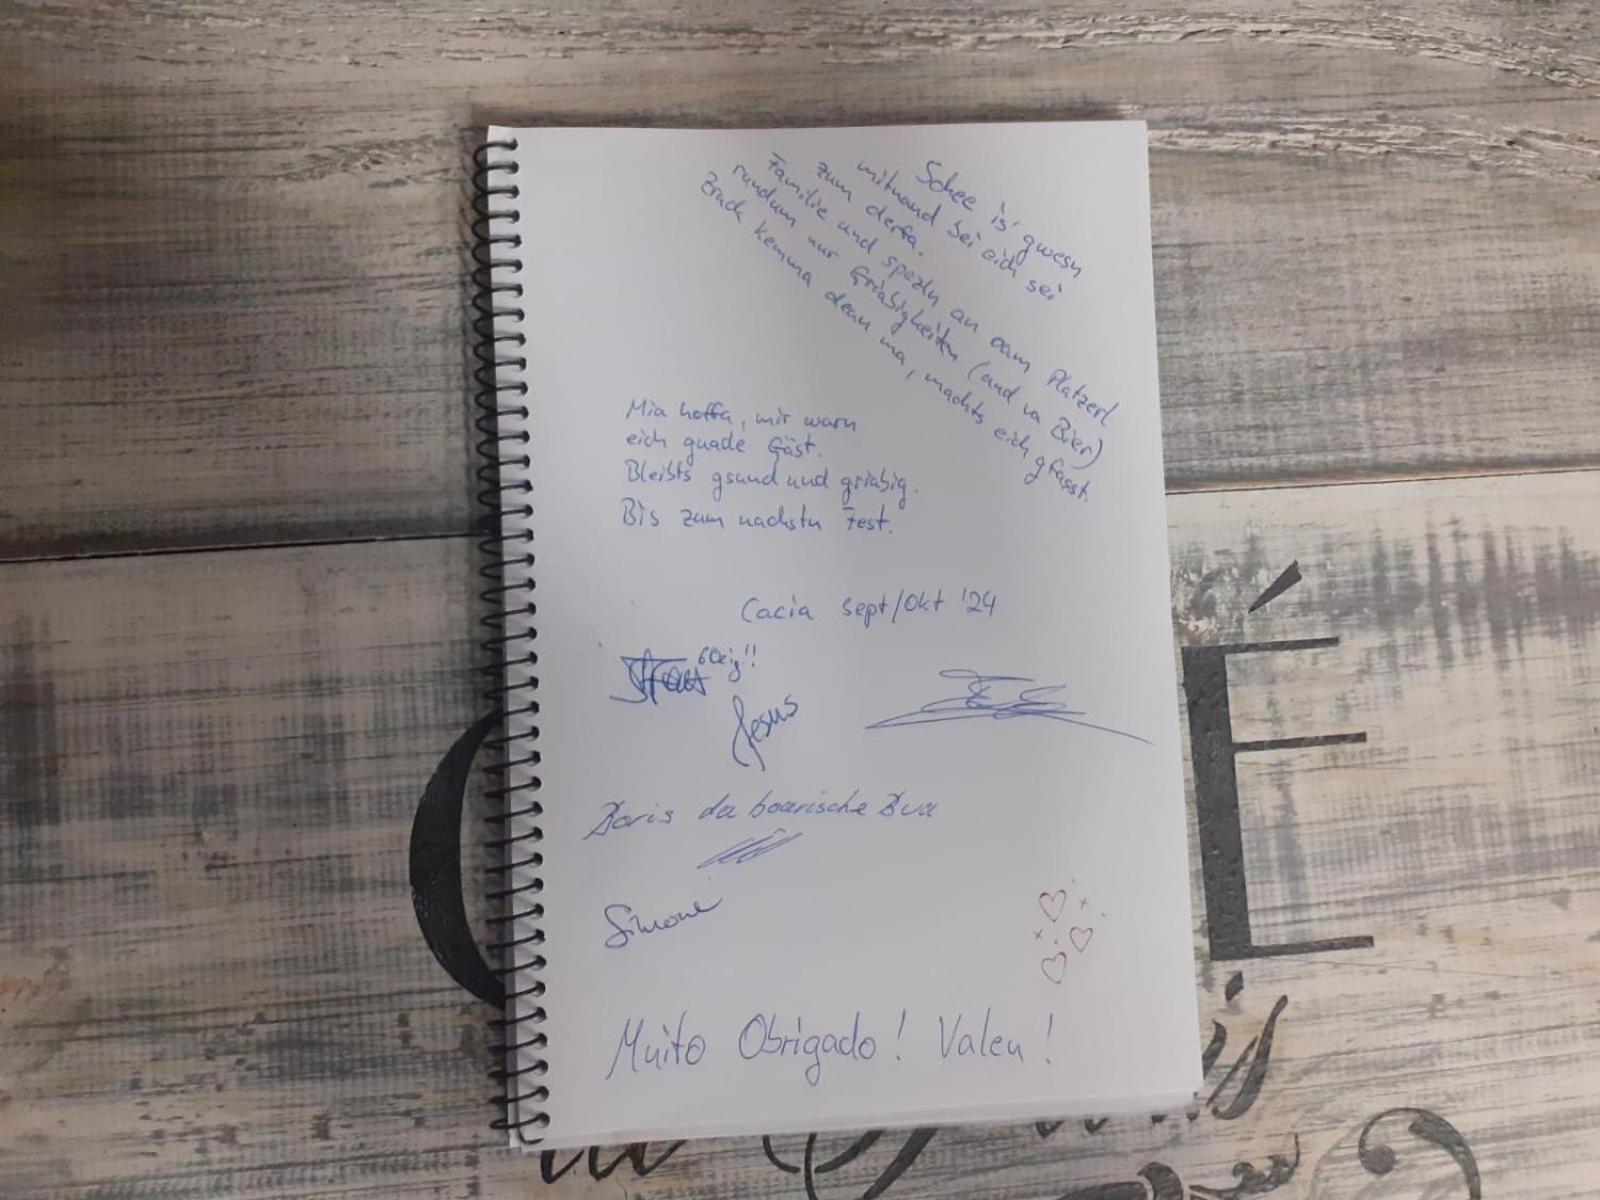 Schee is' gwesn
mitnand bei eich sei
zum derfa.
Familie und spezln an oam Platzerl
rundum nur Griabigkeiten (und va Bier)
Zruck kemma dean ma, machts eich gfasst.
Mia hoffa, mir warn
eich guade Gäst.
Bleibts gsund und griabig.
Bis zum nachstn Fest.
Cacia Sept/Okt '24
60ig!!
Jesus
Boris da boarische Bua
Simone
Muito Obrigado! Valeu!
É